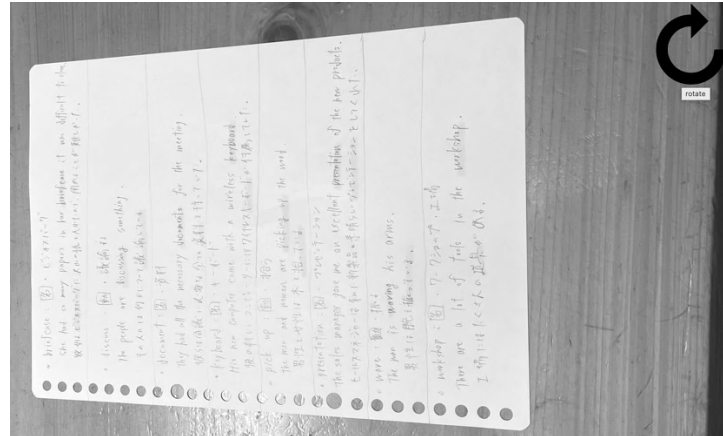 • briefcase [名] ビジネスバッグ
She had so many papers in her briefcase it was difficult to close.
• discuss [動] 議論する
The people are discussing something.
その人々は何かについて議論している
• document [名] 資料
They had all the necessary documents for the meeting.
彼らは会議に必要な全ての資料を持っていた。
• keyboard [名] キーボード
His new computer came with a wireless keyboard.
彼の新しいコンピュータにはワイヤレスキーボードが付属していた。
• pick up [動] 拾う
The man and woman are picking up the wood.
男性と女性は木を拾っている
• presentation [名] プレゼンテーション
The sales manager gave me an excellent presentation of the new products.
セールスマネージャーは私に新商品の素晴らしいプレゼンテーションをしてくれた。
• wave [動] 振る
The man is waving his arms.
男性は腕を振っている。
• workshop [名] ワークショップ、工場
There are a lot of tools in the workshop.
工場にはたくさんの道具がある。
rotate